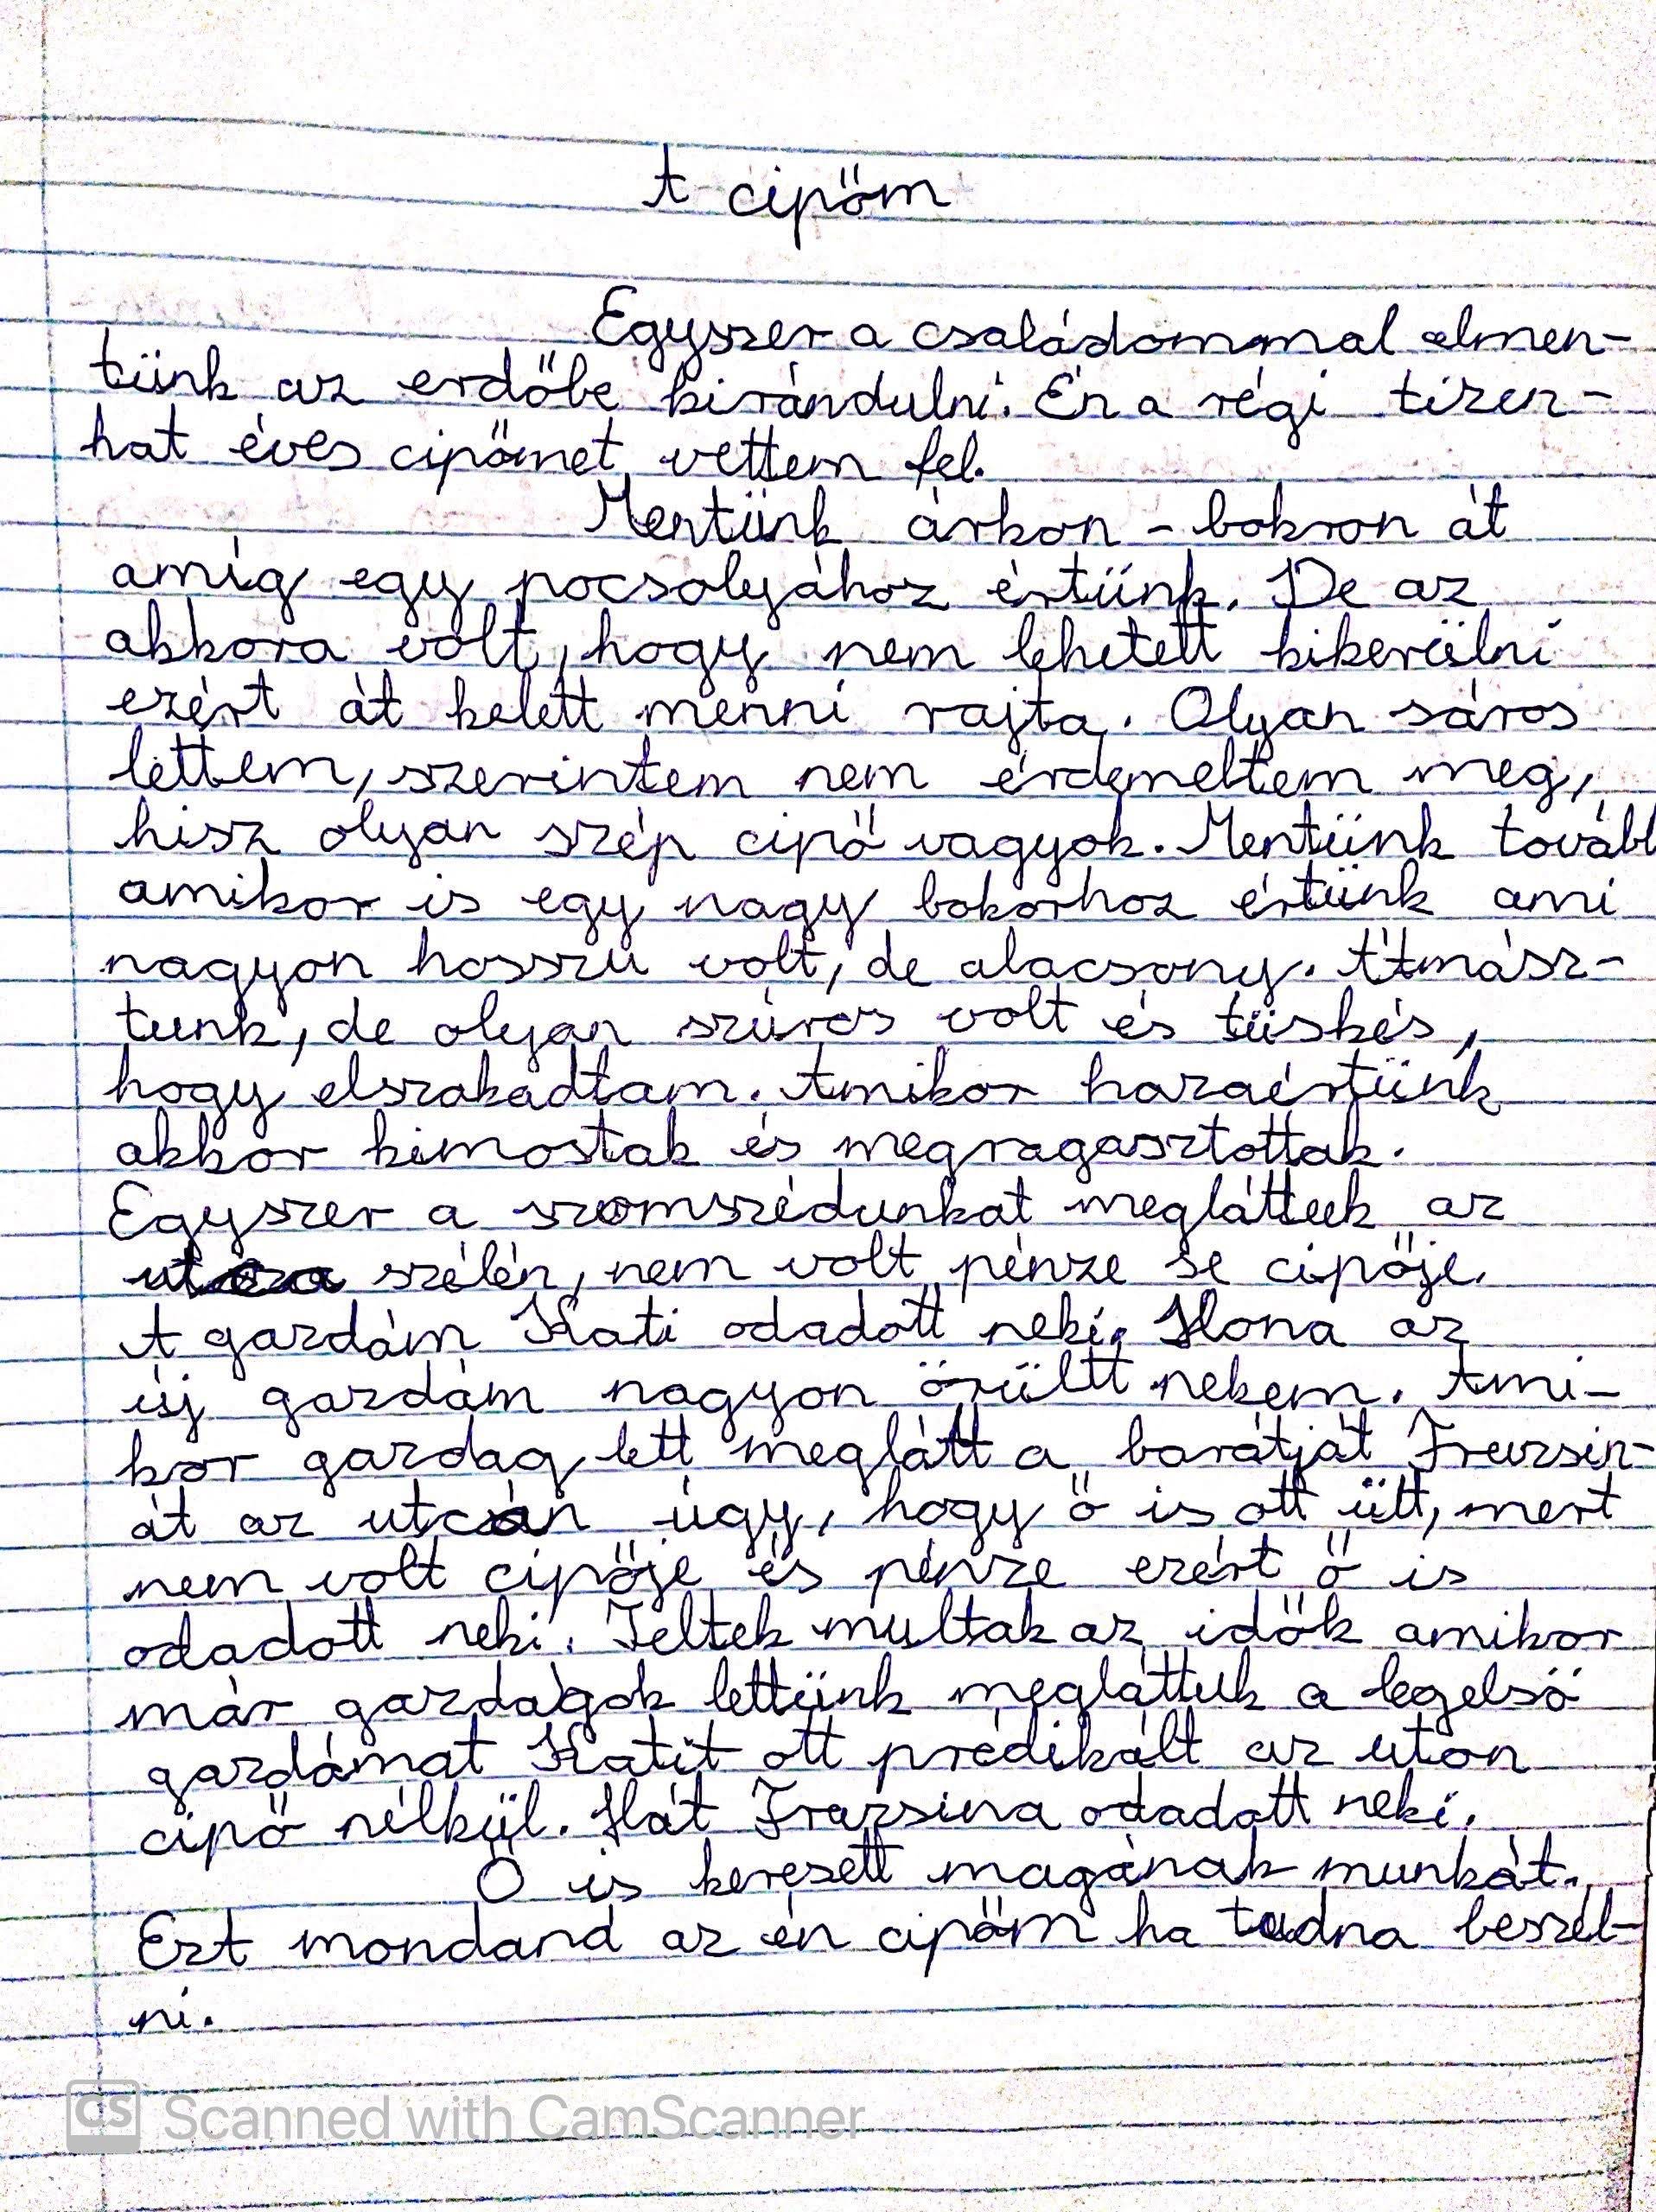 A cipőm
Egyszer a családommal elmen-
tünk az erdőbe kirándulni. Én a régi tizen-
hat éves cipőmet vettem fel.
Mentünk árkon - bokron át
amíg egy pocsolyához értünk. De az
akkora volt, hogy nem lehetett kikerülni
ezért át kelett menni rajta. Olyan sáros
lettem, szerintem nem érdemeltem meg,
hisz olyan szép cipő vagyok. Mentünk tovább
amikor is egy nagy bokorhoz értünk ami
nagyon hosszú volt, de alacsony. Átmász-
tunk, de olyan szúros volt és tüskés,
hogy elszakadtam. Amikor hazaértünk
akkor kimostak és megragasztottak.
Egyszer a szomszédunkat megláttuk az
ut szélén, nem volt pénze se cipője.
A gazdám Kati odadott neki. Ilona az
új gazdám nagyon örültt nekem. Ami-
kor gazdag lett meglátt a barátját Fruzsin-
át az utcán úgy, hogy ő is ott ült, mert
nem volt cipője és pénze ezért ő is
odadott neki. Teltek multak az idők amikor
már gazdagok lettünk megláttuk a legelső
gazdámat Katit ott prédikált az uton
cipő nélkül. Hát Fruzsina odadott neki.
Ő is keresett magának munkát.
Ezt mondaná az én cipőm ha tudna beszél-
ni.
CS Scanned with CamScanner